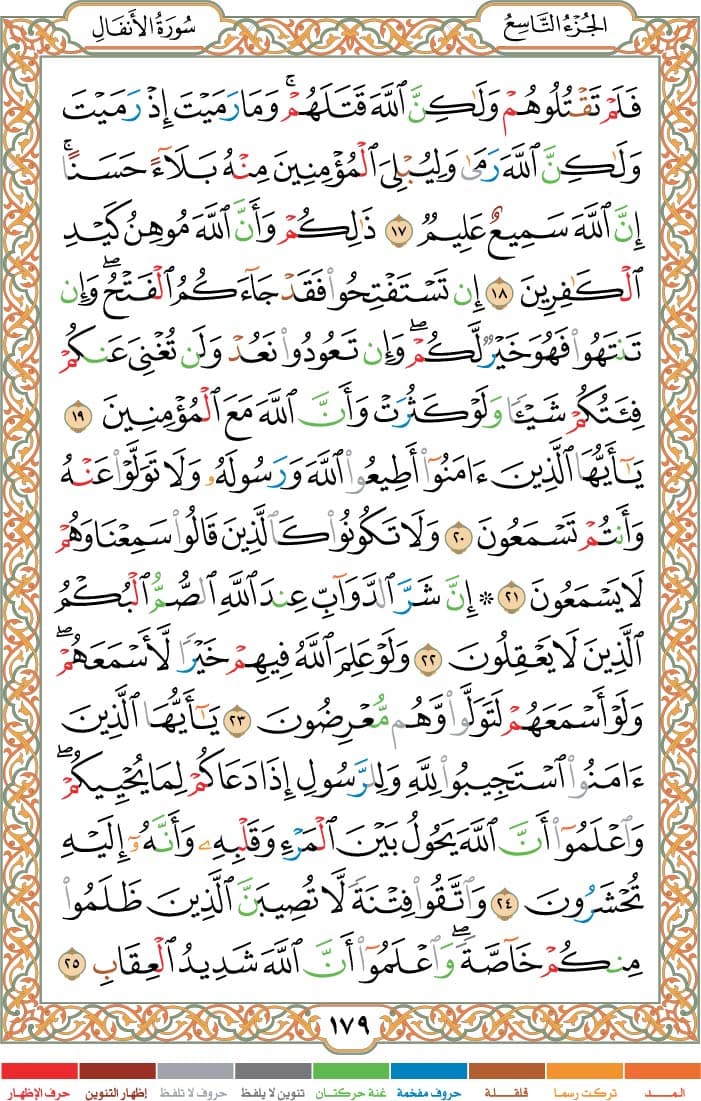 الجُزْءُ التَّاسِعُ
سُورَةُ الأَنفَالِ
فَلَمْ تَقْتُلُوهُمْ وَلَٰكِنَّ ٱللَّهَ قَتَلَهُمْ ۚ وَمَا رَمَيْتَ إِذْ رَمَيْتَ
وَلَٰكِنَّ ٱللَّهَ رَمَىٰ وَلِيُبْلِيَ ٱلْمُؤْمِنِينَ مِنْهُ بَلَآءً حَسَنًا ۚ
إِنَّ ٱللَّهَ سَمِيعٌ عَلِيمٌ ١٧ ذَٰلِكُمْ وَأَنَّ ٱللَّهَ مُوهِنُ كَيْدِ
ٱلْكَٰفِرِينَ ١٨ إِن تَسْتَفْتِحُوا۟ فَقَدْ جَآءَكُمُ ٱلْفَتْحُ ۖ وَإِن
تَنتَهُوا۟ فَهُوَ خَيْرٌ لَّكُمْ ۖ وَإِن تَعُودُوا۟ نَعُدْ وَلَن تُغْنِيَ عَنكُمْ
فِئَتُكُمْ شَيْـًٔا وَلَوْ كَثُرَتْ وَأَنَّ ٱللَّهَ مَعَ ٱلْمُؤْمِنِينَ ١٩
يَٰٓأَيُّهَا ٱلَّذِينَ ءَامَنُوٓا۟ أَطِيعُوا۟ ٱللَّهَ وَرَسُولَهُۥ وَلَا تَوَلَّوْا۟ عَنْهُ
وَأَنتُمْ تَسْمَعُونَ ٢٠ وَلَا تَكُونُوا۟ كَٱلَّذِينَ قَالُوا۟ سَمِعْنَا وَهُمْ
لَا يَسْمَعُونَ ٢١ ۞ إِنَّ شَرَّ ٱلدَّوَآبِّ عِندَ ٱللَّهِ ٱلصُّمُّ ٱلْبُكْمُ
ٱلَّذِينَ لَا يَعْقِلُونَ ٢٢ وَلَوْ عَلِمَ ٱللَّهُ فِيهِمْ خَيْرًا لَّأَسْمَعَهُمْ ۖ
وَلَوْ أَسْمَعَهُمْ لَتَوَلَّوا۟ وَّهُم مُّعْرِضُونَ ٢٣ يَٰٓأَيُّهَا ٱلَّذِينَ
ءَامَنُوا۟ ٱسْتَجِيبُوا۟ لِلَّهِ وَلِلرَّسُولِ إِذَا دَعَاكُمْ لِمَا يُحْيِيكُمْ ۖ
وَٱعْلَمُوٓا۟ أَنَّ ٱللَّهَ يَحُولُ بَيْنَ ٱلْمَرْءِ وَقَلْبِهِۦ وَأَنَّهُۥٓ إِلَيْهِ
تُحْشَرُونَ ٢٤ وَٱتَّقُوا۟ فِتْنَةً لَّا تُصِيبَنَّ ٱلَّذِينَ ظَلَمُوا۟
مِنكُمْ خَآصَّةً ۖ وَٱعْلَمُوٓا۟ أَنَّ ٱللَّهَ شَدِيدُ ٱلْعِقَابِ ٢٥
١٧٩
المــد تركت رسما قلقلة حروف مفخمة غنة حركتان تنوين لا يلفظ حروف لا تلفظ إظهار التنوين حرف الإظهار